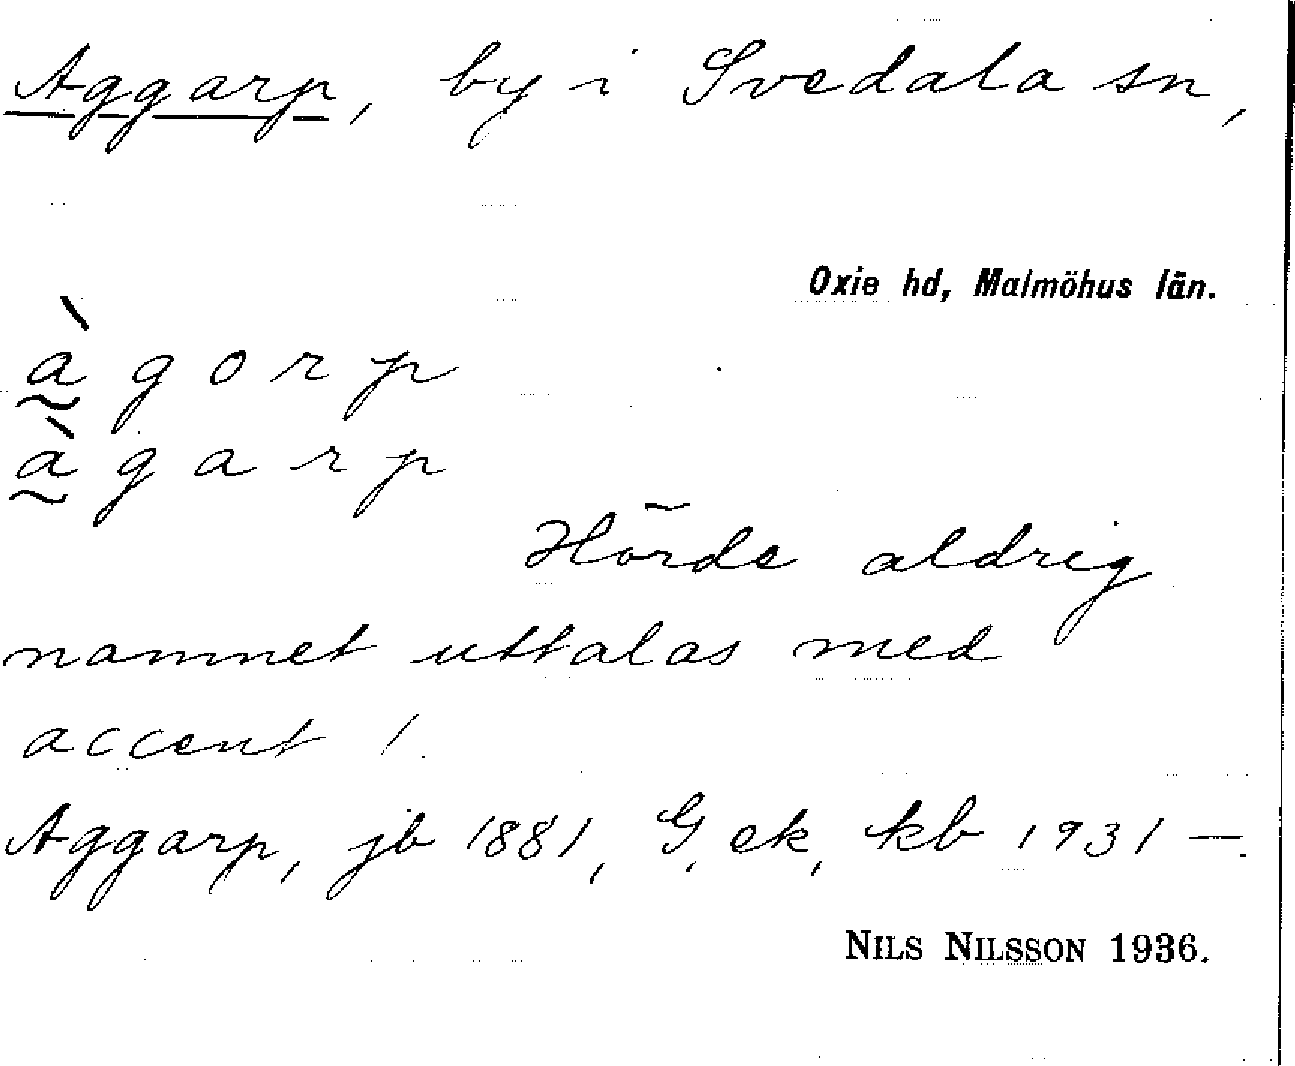 Aggarp, by i Svedala sn,
Oxie hd, Malmöhus län.
à̰ g o r p
à̰ g a r p
Hörde aldrig
namnet uttalas med
accent 1.
Aggarp, jb 1881, G, ek, kb 1931 —.
NILS NILSSON 1936.